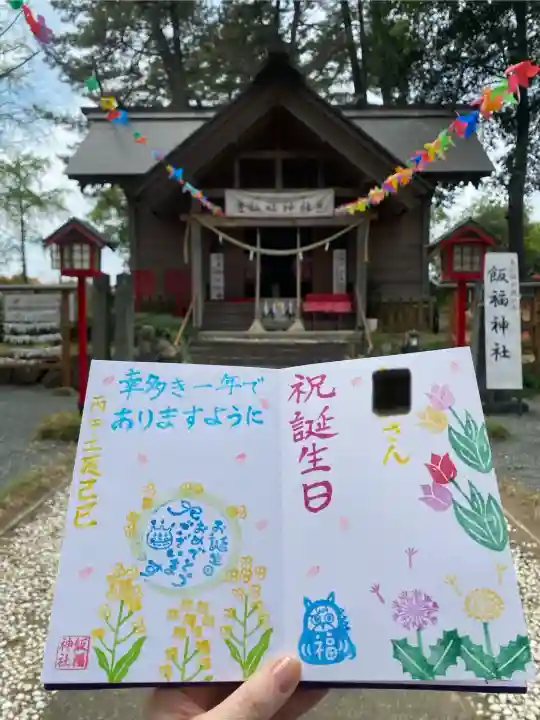 飯福神社
幸多き一年で
ありますように
お誕生日
おめでとう
ございます
飯福
神社
祝誕生日
さん
福